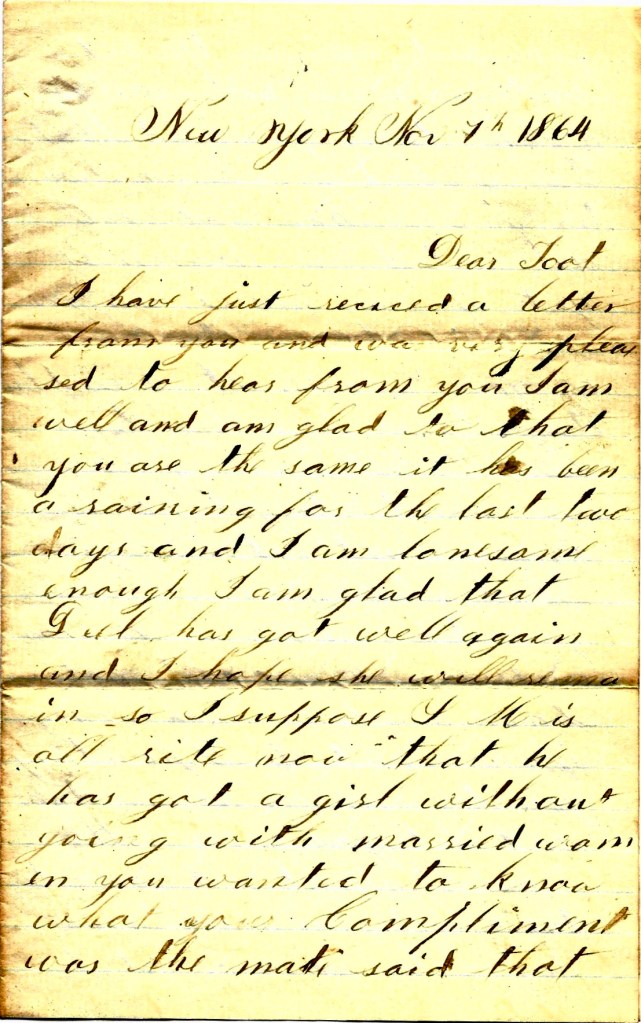 New York Nov 7th 1864
Dear Toot
I have just recieced a letter
from you and wa very plea
sed to hear from you I am
well and am glad to that
you are the same it has been
a raining for the last two
days and I am lonesome
enough I am glad that
has got well again
and I hope she will rema
in so I suppose S M is
all rite now that he
has got a girl without
going with married wom
en you wanted to know
what your Compliment
was the mate said that